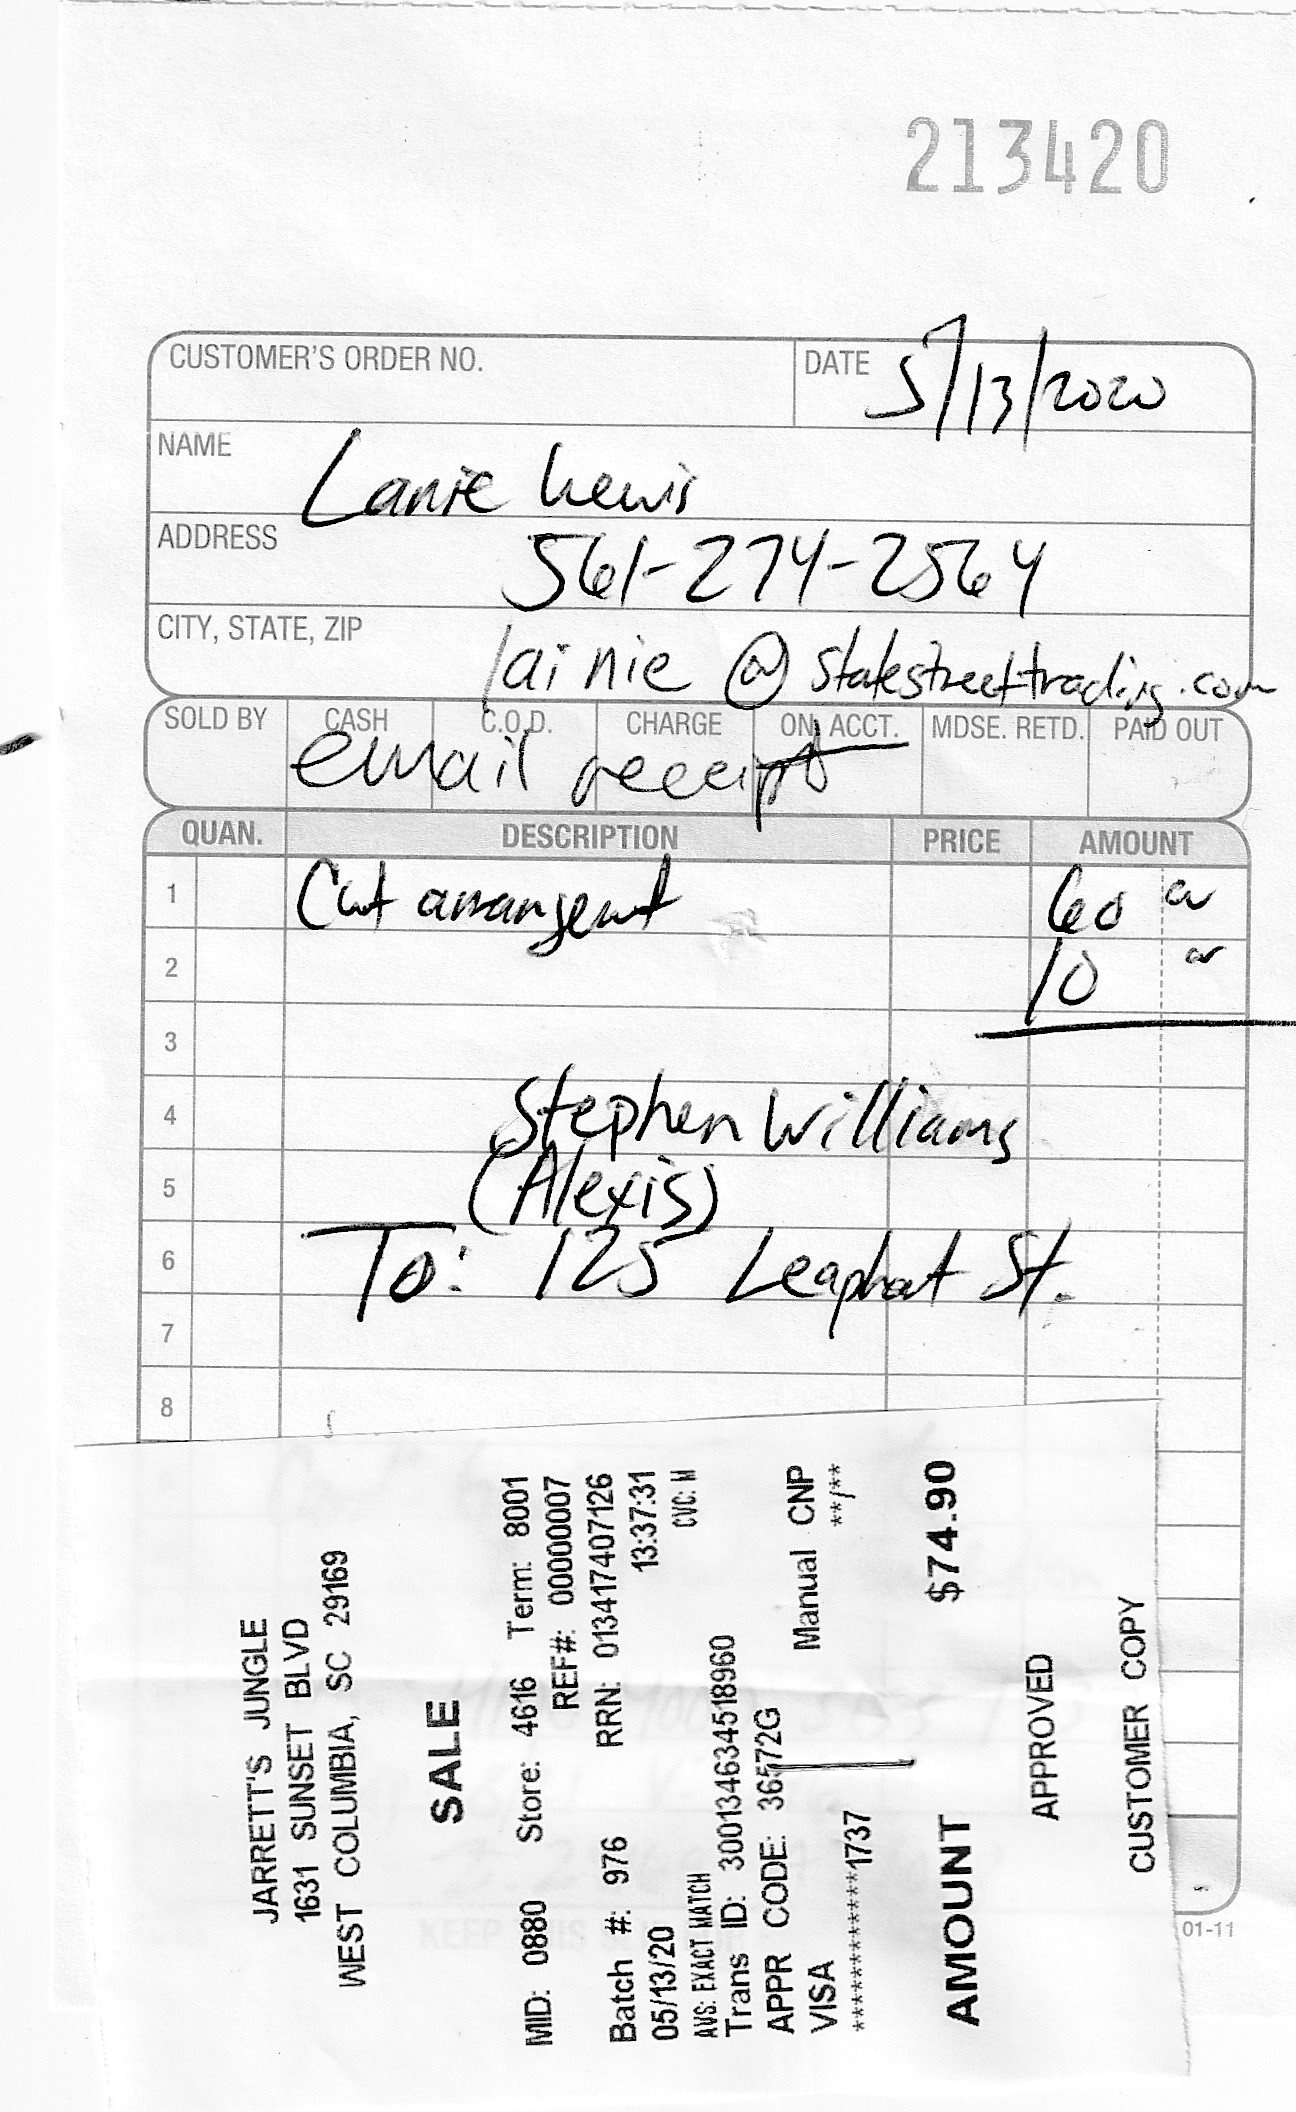 213420
CUSTOMER'S ORDER NO. DATE 5/13/2020
NAME Lanie Lewis
ADDRESS 561-274-2564
CITY, STATE, ZIP lainie@statestreettrading.com
SOLD BY CASH C.O.D. CHARGE ON ACCT. MDSE. RETD. PAID OUT
email receipt
QUAN. DESCRIPTION PRICE AMOUNT
1 Cut arrangemt 60 00
2 10 00
3
4 Stephen Williams
5 (Alexis)
6 To: 125 Leaphart St.
7
8
JARRETT'S JUNGLE
1631 SUNSET BLVD
WEST COLUMBIA, SC 29169
SALE
MID: 0880 Store: 4616 Term: 8001
REF#: 00000007
Batch #: 976 RRN: 013417407126
05/13/20 13:37:31
AVS: EXACT MATCH CVC: M
Trans ID: 300134634518960
APPR CODE: 36572G
VISA Manual CNP
************1737 **/**
AMOUNT $74.90
APPROVED
CUSTOMER COPY
KEEP THIS
01-11